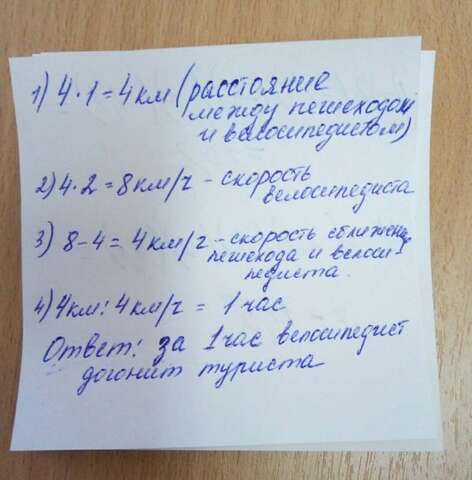 1) 4 · 1 = 4 км (расстояние
между пешеходом
и велосипедистом)
2) 4 · 2 = 8 км/ч - скорость
велосипедиста
3) 8 - 4 = 4 км/г - скорость сближения
пешехода и велоси-
педиста.
4) 4 км : 4 км/ч = 1 час
Ответ: за 1 час велосипедист
догонит туриста